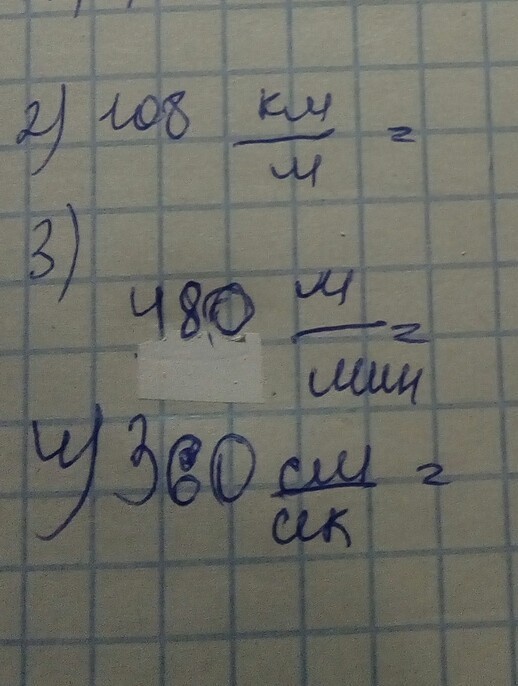 2) 108 км/м =
3)
480 м/мин =
4) 360 см/сек =